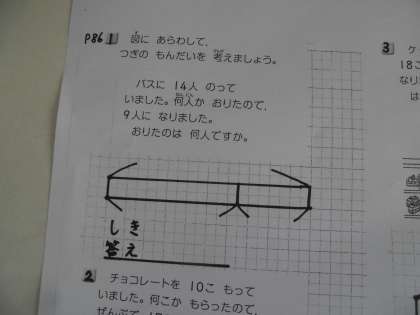 P86 1 図に あらわして、
つぎの もんだいを 考えましょう。
バスに 14人 のって
いました。何人か おりたので、
9人に なりました。
おりたのは 何人ですか。
しき
答え
2 チョコレートを 10こ もって
いました。何こか もらったので、
ぜんぶで
3
18こ
なり
は